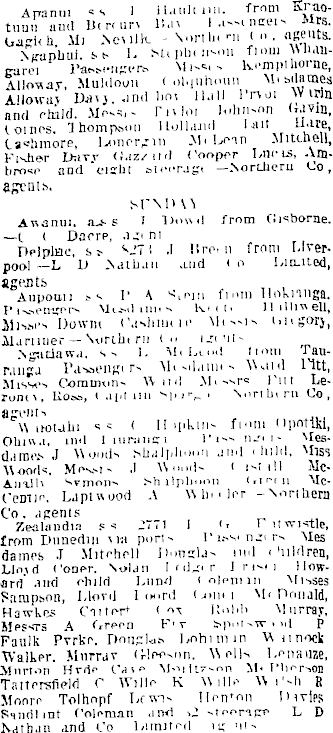 Apanui s s Haultain, from Kuao-
tunu and Bercury Bay Passengers Mrs.
Gagich, Mr Neville - Northern Co, agents.
Ngapuhi, s s L Stephenson from Whan-
garei Passengers Misses Kempthorne,
Alloway, Muldoon Colquhoun Mesdames
Alloway Davy, and boy Hall Pryor
and child, Messrs Taylor Johnson Gavin,
Coines, Thompson Holland Tait Hare,
Cashmore, Lonergin McLean Mitchell,
Fisher Davy Gazzard Cooper Am-
brose and eight steerage —Northern Co,
agents.
SUNDAY
Awanui, Dowd from Gisborne.
Dacre, agent
Delphic, s s 8273 J Breen from Liver-
pool — L D Nathan and Co Limited,
agents
Aupouri s s P A Stein from Hokianga.
Passengers Mesdames
Misses Downe Cashmere Messrs Gregory,
Martiner — Northern Co agents
Ngatiawa, s s L McLeod from Tau-
ranga Passengers Mesdames Ward Pitt,
Misses Commons Ward Messrs Pitt Le-
Ross, Captain Northern Co,
agents
s s C Hopkins from Opotiki,
Ohiwa, and Tauranga Passengers Mes-
dames J Woods Shalphoon and child, Miss
Woods, Messrs J Woods Mc-
Anally Symons Shalphoon Green Mc-
Centie, Laptwood A Wheeler —Northern
Co, agents
Zealandia s s 2771 from Dunedin via ports
Passengers Mes
dames J Mitchell Douglas and children,
Lloyd Coner, Nolan Ledger How-
ard and child Lund Coleman Misses
Sampson, Lloyd McDonald,
Hawkes Carter Cox Robb Murray,
Messrs A Green P
Faulk Pyrke, Douglas
Walker, Murray Gleeson, Wells
Murton Hyde Cave Moritzson McPherson
Tattersfield C Wille K Wille R
Moore Tolhopf Lewis Henton Davies
Coleman and 52 steerage L D
Nathan and Co Limited agents